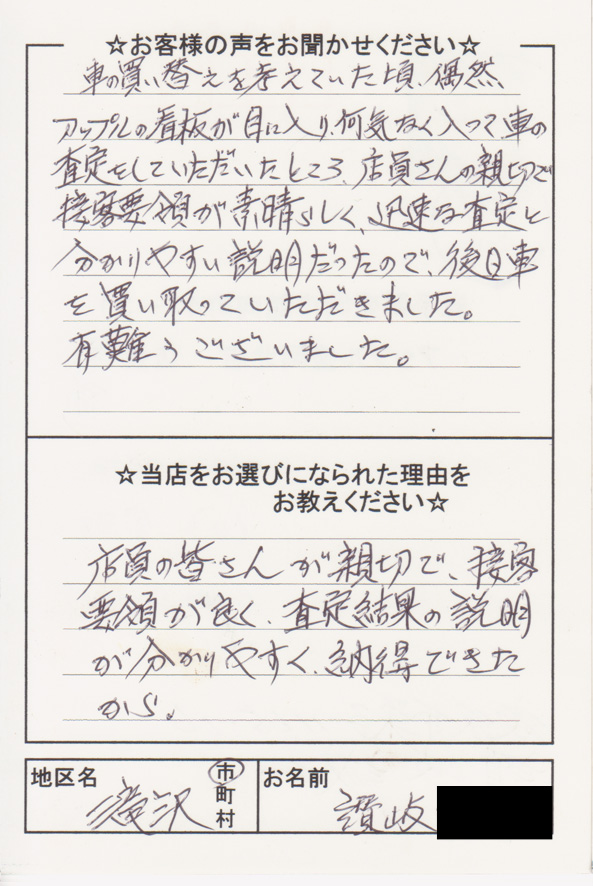 ☆お客様の声をお聞かせください☆
車の買い替えを考えていた頃、偶然
アップルの看板が目に入り、何気なく入って、車の
査定をしていただいたところ、店員さんの親切で
接客要領が素晴らしく、迅速な査定と
分かりやすい説明だったので、後日車
を買い取っていただきました。
有難うございました。
☆当店をお選びになられた理由を
お教えください☆
店員の皆さんが親切で、接客
要領が良く、査定結果の説明
が分かりやすく、納得できた
から。
地区名
滝沢
市
町
村
お名前
讃岐